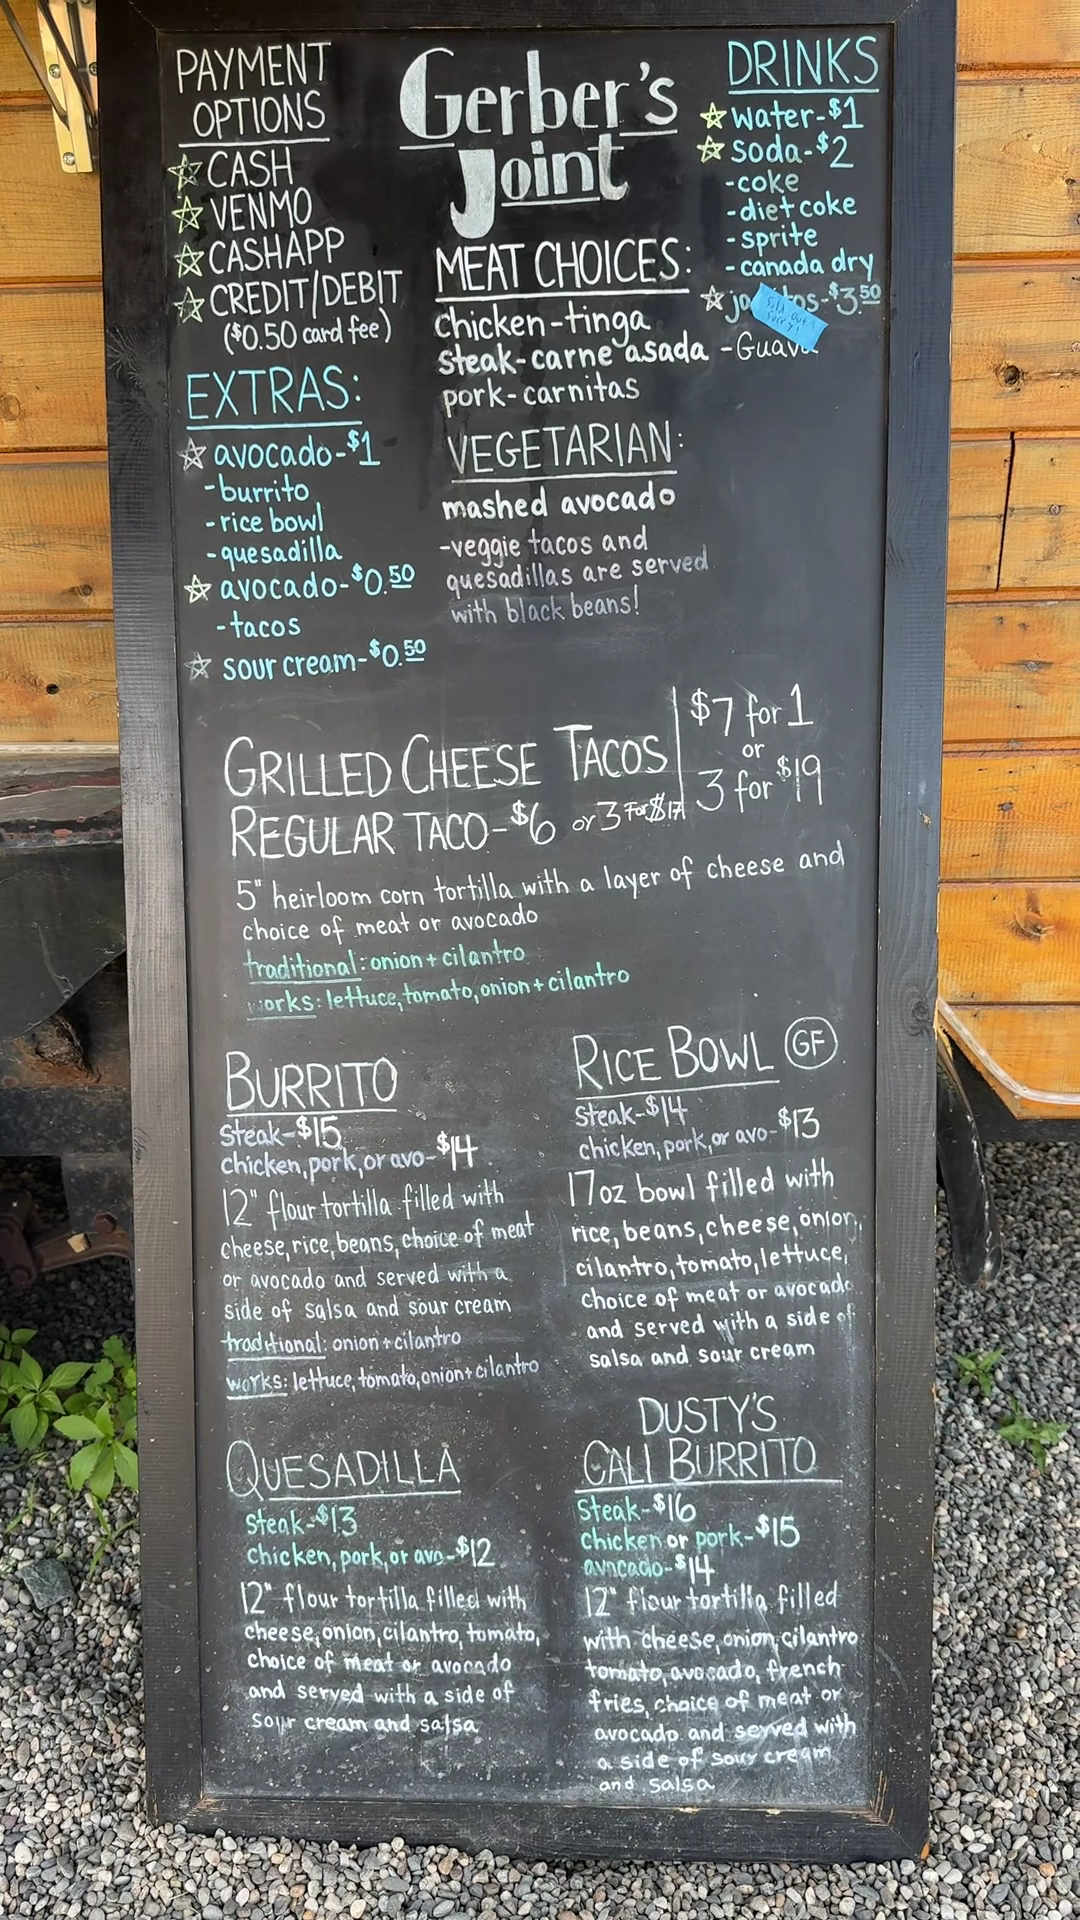 PAYMENT
OPTIONS
CASH
VENMO
CASHAPP
CREDIT/DEBIT
($0.50 card fee)
EXTRAS:
avocado-$1
-burrito
-rice bowl
-quesadilla
avocado-$0.50
-tacos
sour cream-$0.50
Gerber's
Joint
MEAT CHOICES:
chicken-tinga
steak-carne asada
pork-carnitas
VEGETARIAN:
mashed avocado
-veggie tacos and
quesadillas are served
with black beans!
DRINKS
water-$1
soda-$2
-coke
-diet coke
-sprite
-canada dry
-$3.50
Sold Out
Sorry!
-Guava
GRILLED CHEESE TACOS
$7 for 1
or
3 for $19
REGULAR TACO-$6 or 3 For $17
5" heirloom corn tortilla with a layer of cheese and
choice of meat or avocado
traditional: onion + cilantro
works: lettuce, tomato, onion + cilantro
BURRITO
steak-$15
chicken, pork, or avo-$14
12" flour tortilla filled with
cheese, rice, beans, choice of meat
or avocado and served with a
side of salsa and sour cream
traditional: onion + cilantro
works: lettuce, tomato, onion + cilantro
RICE BOWL GF
steak-$14
chicken, pork, or avo-$13
17oz bowl filled with
rice, beans, cheese, onion,
cilantro, tomato, lettuce,
choice of meat or avocado
and served with a side of
salsa and sour cream
QUESADILLA
steak-$13
chicken, pork, or avo-$12
12" flour tortilla filled with
cheese, onion, cilantro, tomato,
choice of meat or avocado
and served with a side of
sour cream and salsa
DUSTY'S
CALI BURRITO
steak-$16
chicken or pork-$15
avocado-$14
12" flour tortilla filled
with cheese, onion, cilantro
tomato, avocado, french
fries, choice of meat or
avocado and served with
a side of sour cream
and salsa